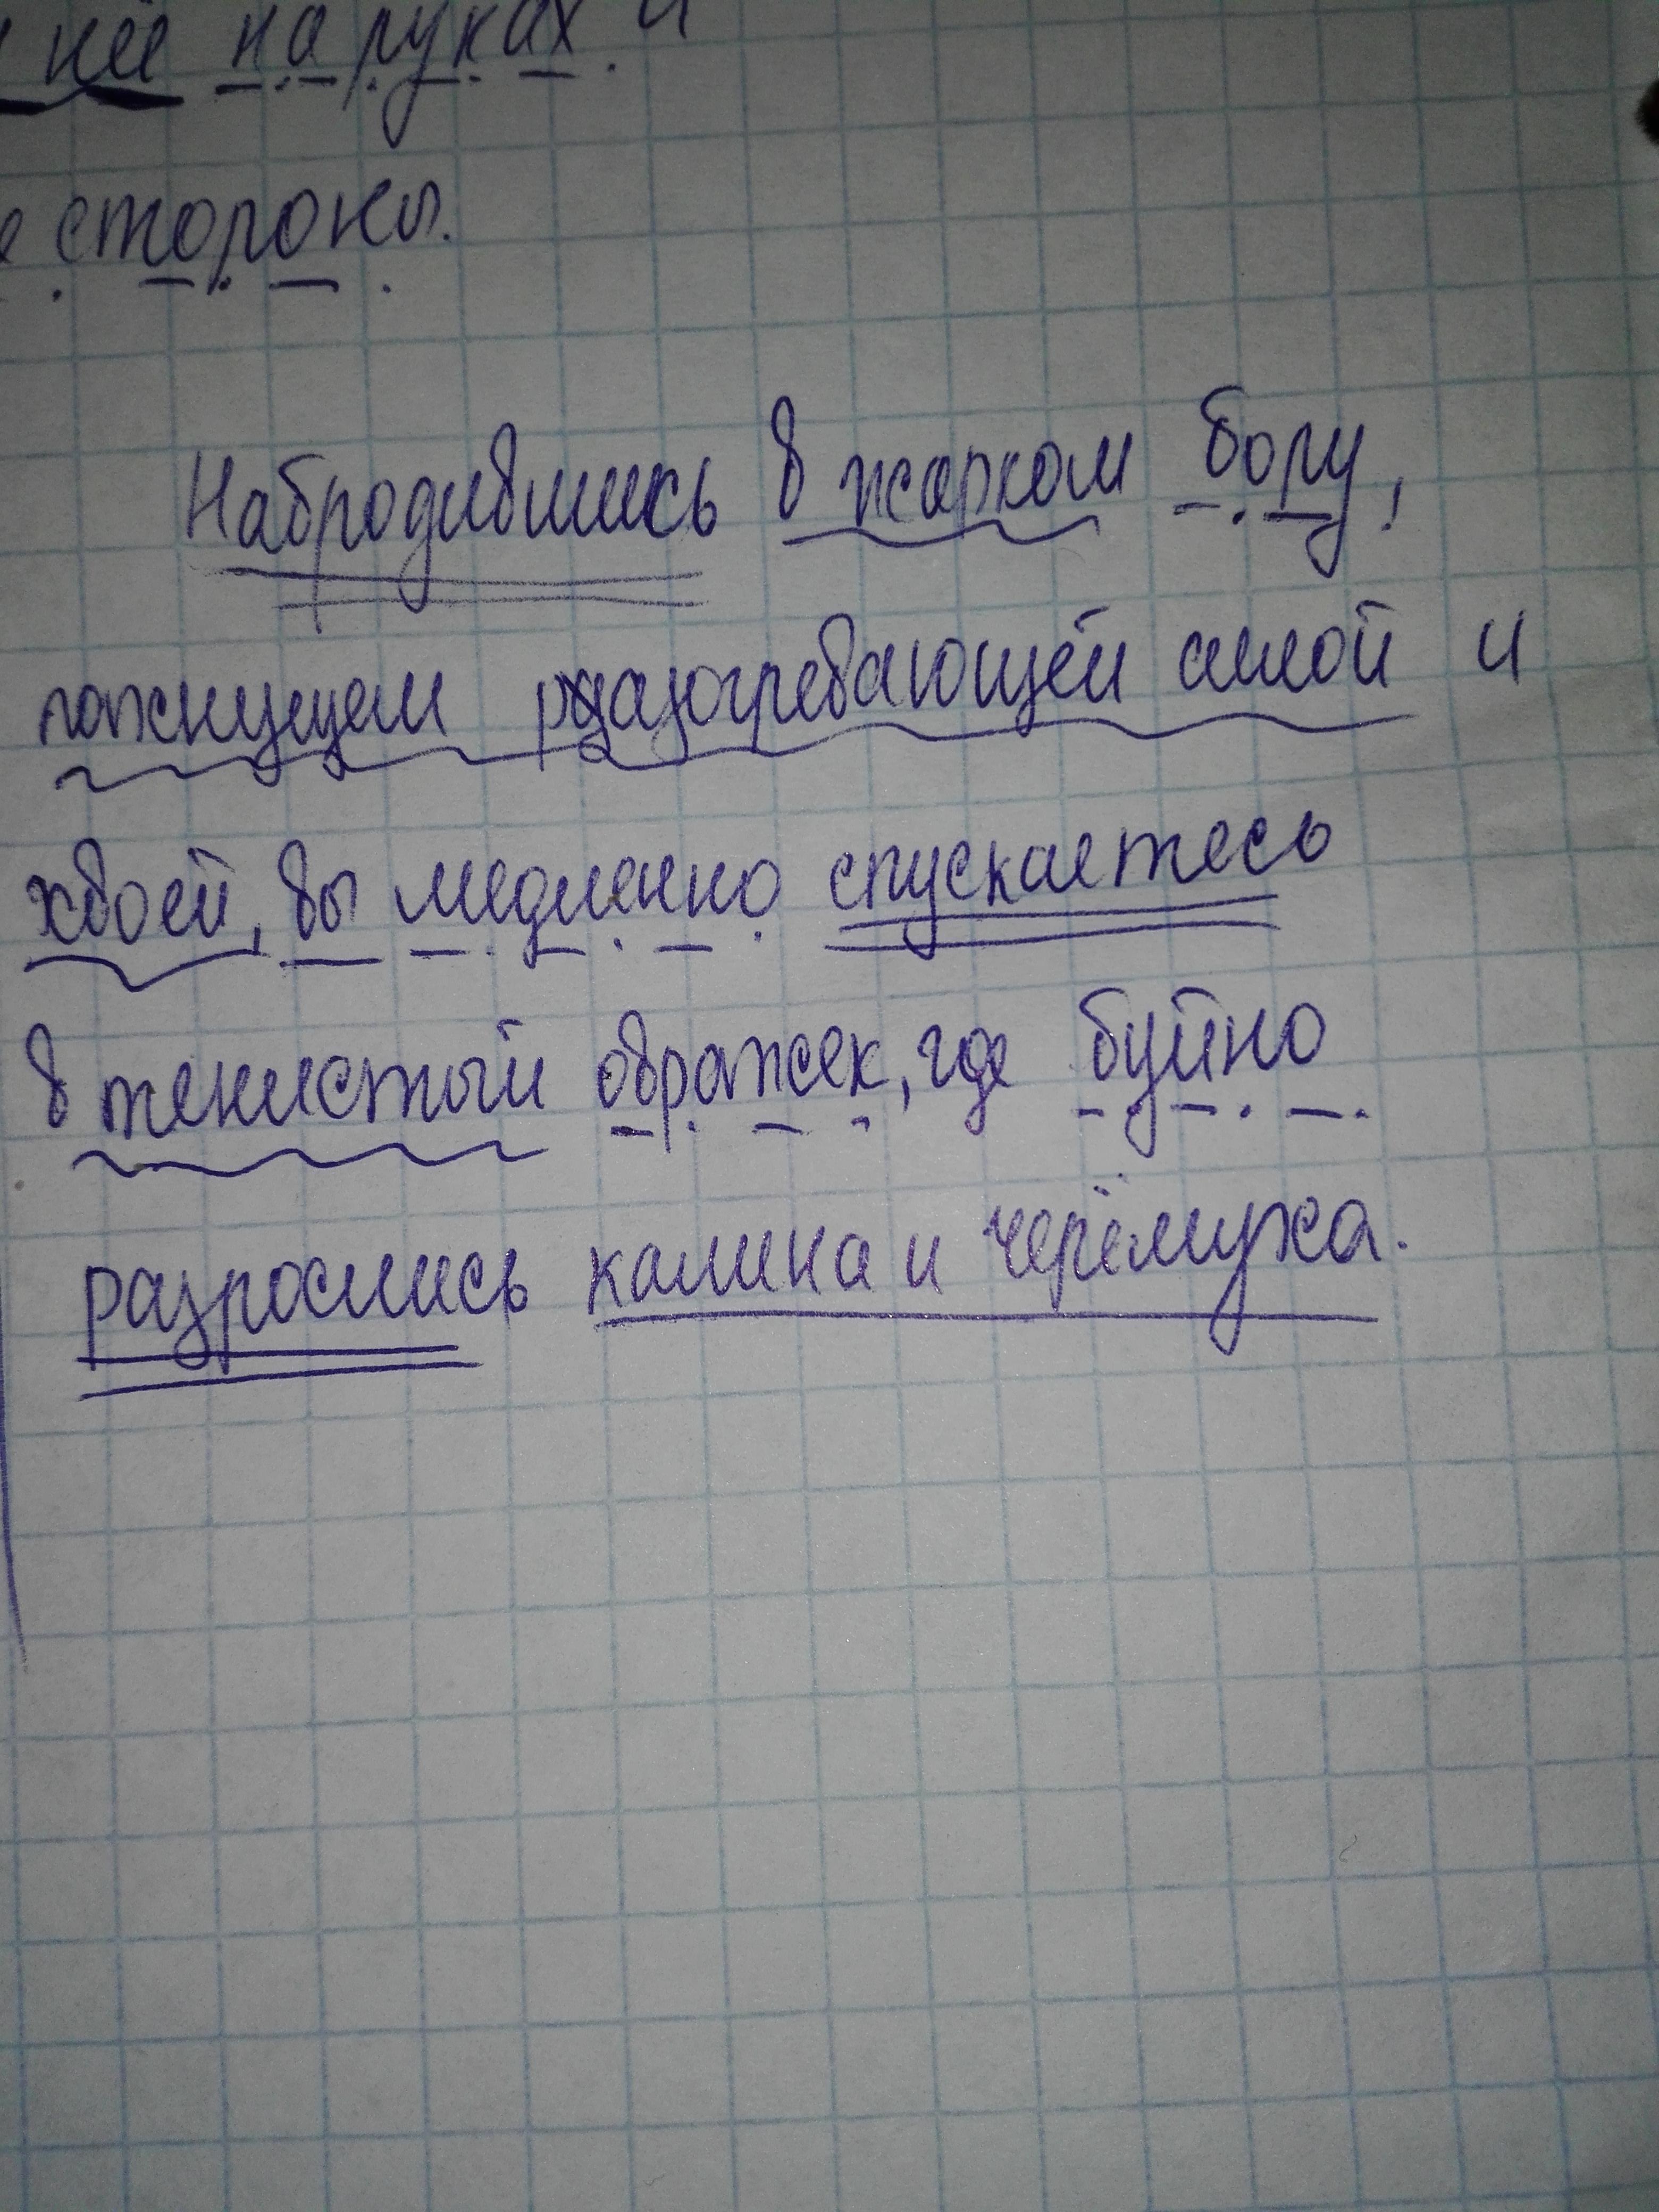 неё на руках и
стороны.
Набродившись в жарком бору,
пахнущем разогревающей смолой и
хвоей, вы медленно спускаетесь
в тенистый овражек, где буйно
разрослись калина и черёмуха.